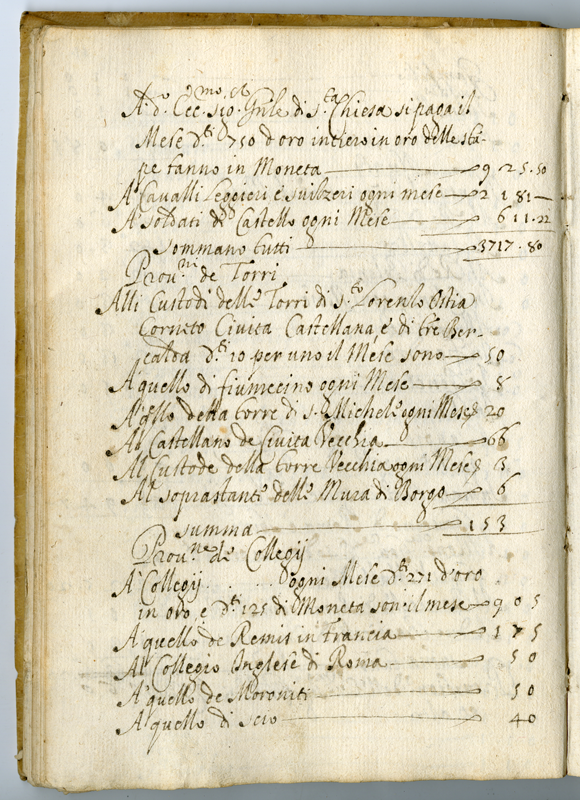 A d.o Ecc. sig.o Gnle di s.ta Chiesa si paga il
Mese d.ti 750 d'oro in oro delle sta-
pe fanno in Moneta 925.50
A Cavalli Leggieri e suizzeri ogni mese 2181
A soldati di Castello ogni Mese 611.22
Sommano tutti 3717.80
Prou.ni de Torri
Alli Custodi delle Torri di s.to Lorenzo Ostia
Corneto Civita Castellana, e di tre Ber-
calda d.ti 10 per uno il Mese sono 50
A quello di fiumecino ogni Mese 8
A qllo della torre di s. Michele ogni Mese 20
Al Castellano de Civita Vecchia 66
Al Custode della torre Vecchia ogni Mese 3
Al soprastante delle Mura di Borgo 6
summa 153
Prou.ne de Collegij
A Collegij ogni Mese d.ti 271 d'oro
in oro, e d.ti 125 di Moneta son il mese 905
A quello de Remis in Francia 175
Al Collegio Inglese di Roma 50
A quello de Moroniti 50
A quello di Scio 40